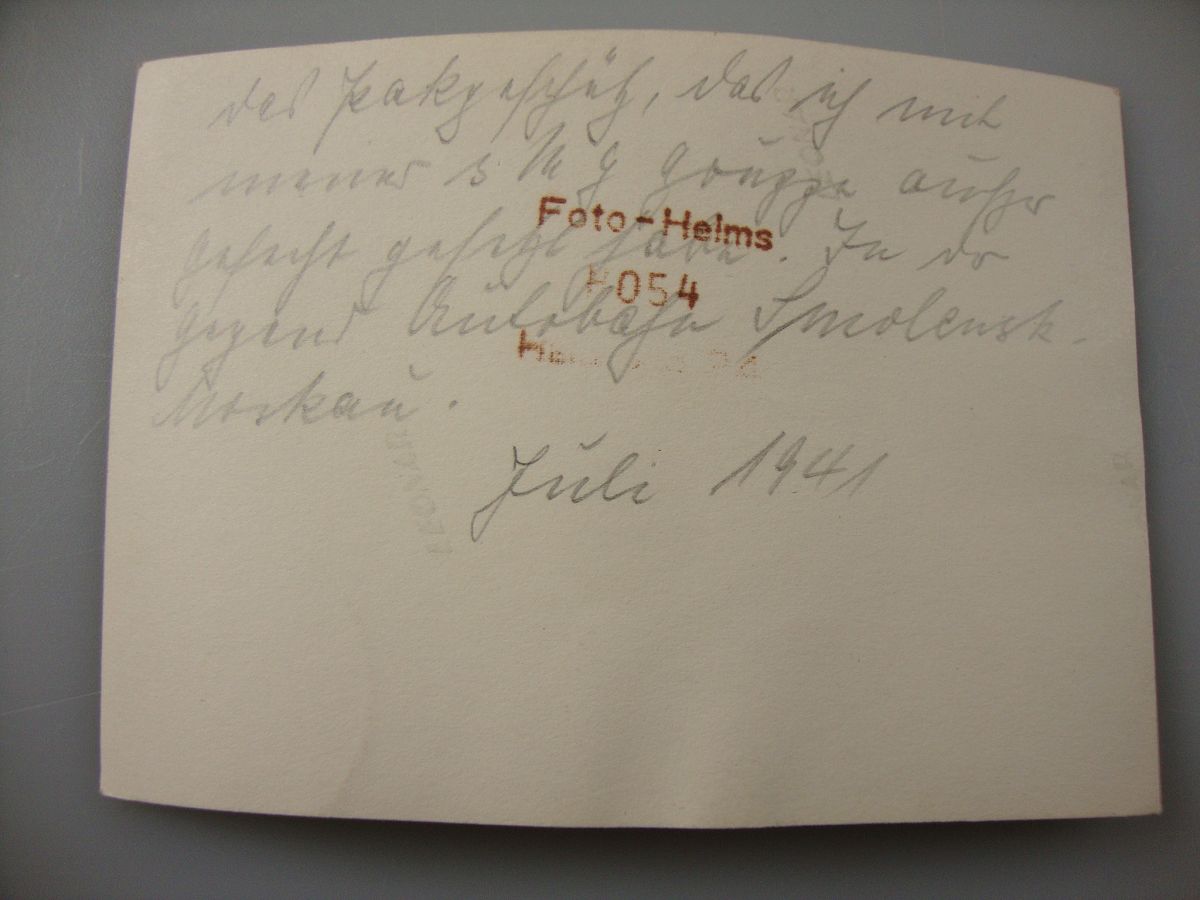 das Pakgeschütz, das ich mit
meiner s M G Gruppe außer
Gefecht gesetzt habe. In der
Gegend Autobahn Smolensk-
Moskau.
Juli 1941
Foto-Helms
8054